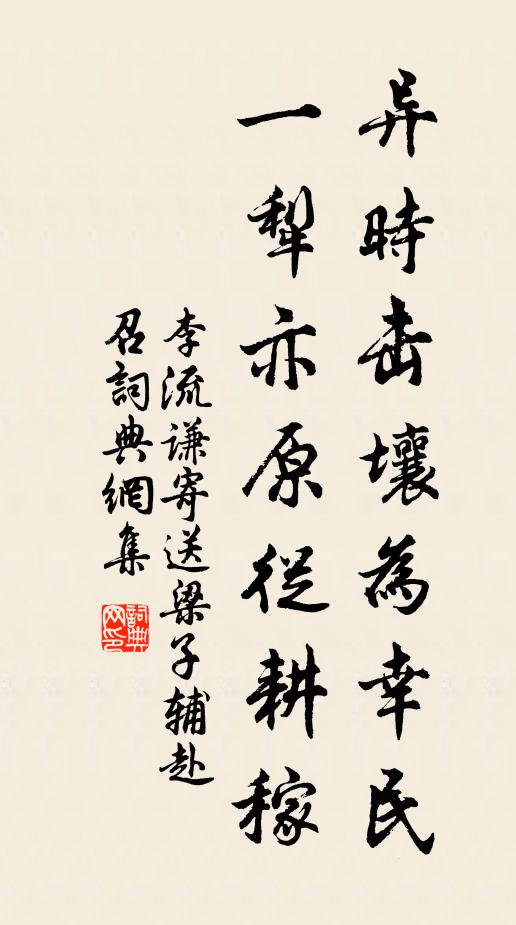 异時击壤為幸民
一犁亦原従耕稼
李流謙寄送梁子辅赴
召詞典網集
詞典网印